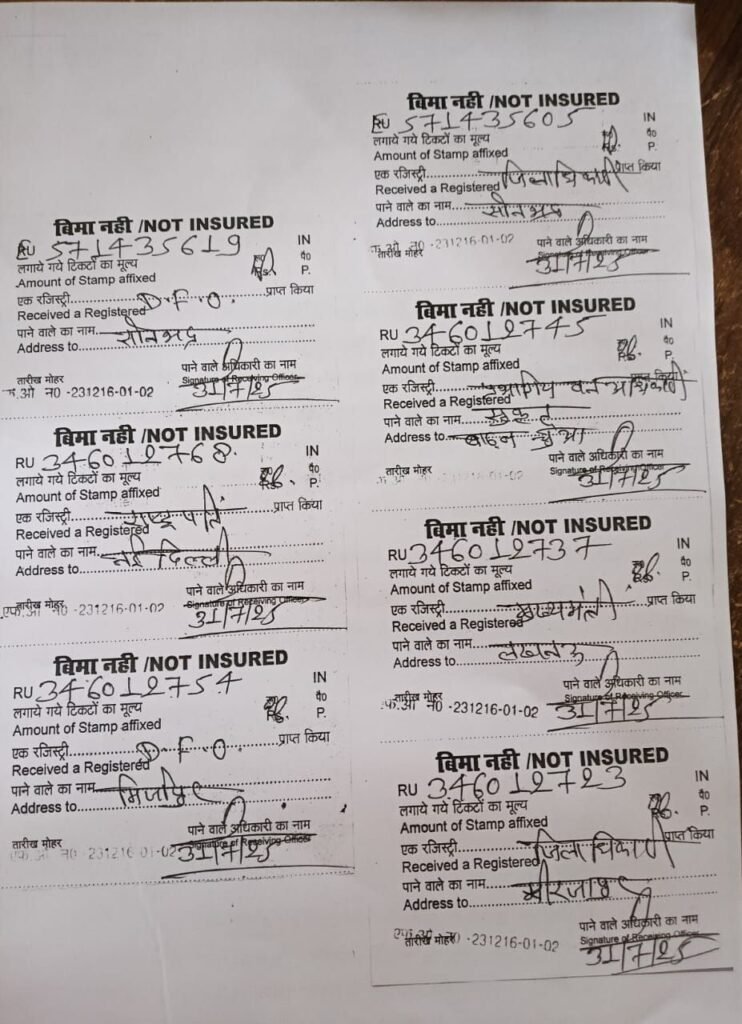 बिमा नही /NOT INSURED
RU 571435619 IN
लगाये गये टिकटों का मूल्य Rs. पै०
Amount of Stamp affixed P.
एक रजिस्ट्री D.F.O. प्राप्त किया
Received a Registered
पाने वाले का नाम सोनभद्र
Address to
पाने वाले अधिकारी का नाम
तारीख मोहर Signature of Receiving Officer
फ.ओ न0 -231216-01-02 31/7/25
बिमा नही /NOT INSURED
RU 346012768 IN
लगाये गये टिकटों का मूल्य पै०
Amount of Stamp affixed P.
एक रजिस्ट्री राष्ट्रपति प्राप्त किया
Received a Registered
पाने वाले का नाम नई दिल्ली
Address to
पाने वाले अधिकारी का नाम
तारीख मोहर Signature of Receiving Officer
एफ.ओ न0 -231216-01-02 31/7/25
बिमा नही /NOT INSURED
RU 346012754 IN
लगाये गये टिकटों का मूल्य पै०
Amount of Stamp affixed P.
एक रजिस्ट्री D.F.O. प्राप्त किया
Received a Registered
पाने वाले का नाम
Address to
पाने वाले अधिकारी का नाम
तारीख मोहर Signature of Receiving Officer
एफ.ओ न0 -231216-01-02 31/7/25
बिमा नही /NOT INSURED
RU 571435605 IN
लगाये गये टिकटों का मूल्य पै०
Amount of Stamp affixed P.
एक रजिस्ट्री जिलाधिकारी प्राप्त किया
Received a Registered
पाने वाले का नाम सोनभद्र
Address to
फ.ओ न0 -231216-01-02 पाने वाले अधिकारी का नाम
तारीख मोहर Signature of Receiving Officer
31/7/25
बिमा नही /NOT INSURED
RU 346012745 IN
लगाये गये टिकटों का मूल्य पै०
Amount of Stamp affixed P.
एक रजिस्ट्री वन प्राप्त किया
Received a Registered
पाने वाले का नाम
Address to
पाने वाले अधिकारी का नाम
तारीख मोहर Signature of Receiving Officer
-231216-01-02 31/7/25
बिमा नही /NOT INSURED
RU 346012737 IN
लगाये गये टिकटों का मूल्य पै०
Amount of Stamp affixed P.
एक रजिस्ट्री मुख्यमंत्री प्राप्त किया
Received a Registered
पाने वाले का नाम लखनऊ
Address to
पाने वाले अधिकारी का नाम
तारीख मोहर Signature of Receiving Officer
फ.ओ न0 -231216-01-02 31/7/25
बिमा नही /NOT INSURED
RU 346012723 IN
लगाये गये टिकटों का मूल्य पै०
Amount of Stamp affixed P.
एक रजिस्ट्री जिलाधिकारी प्राप्त किया
Received a Registered
पाने वाले का नाम मीरजापुर
Address to
पाने वाले अधिकारी का नाम
तारीख मोहर Signature of Receiving Officer
एफ.ओ न0 -231216-01-02 31/7/25